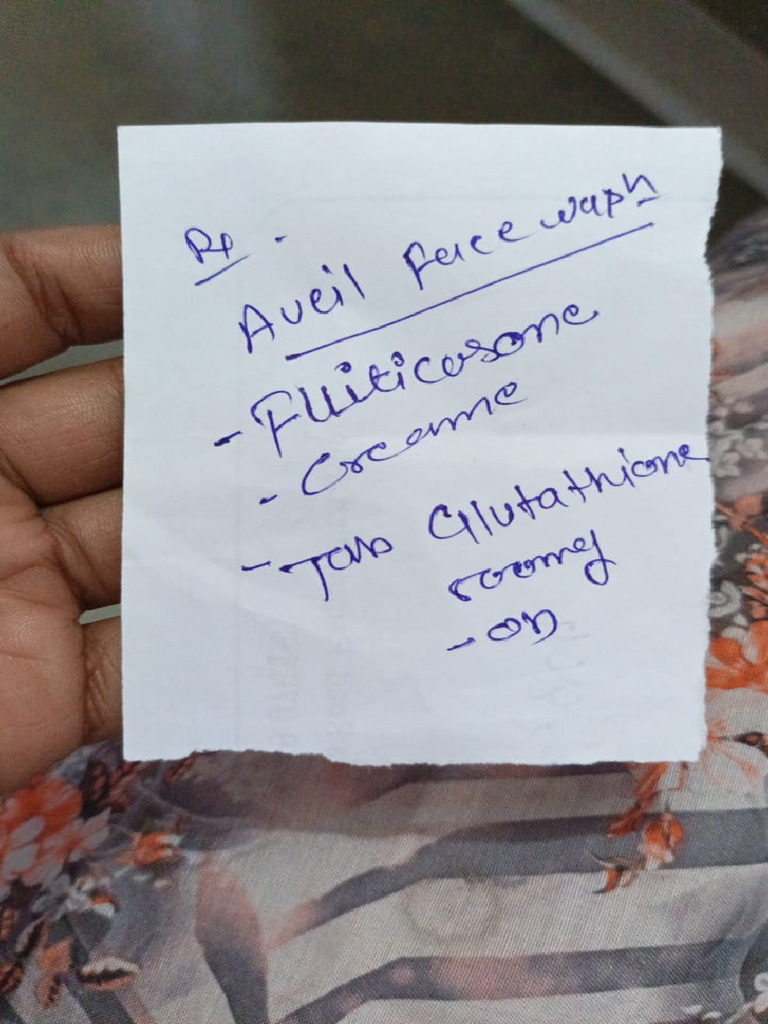 Rp -
Aveil face wash
- Fluticasone
- Creame
- Tab Glutathione
500mg
- OD